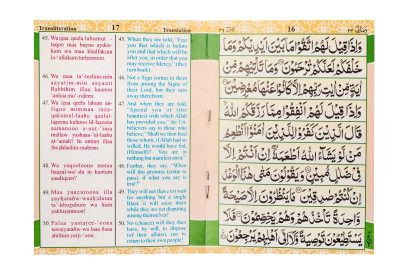 Transliteration 17 Translation
45. Wa izaa qeela lahumut-
taqoo maa bayna aydee-
kum wa maa khalfakum
la-'allakum turhamoon.
46. Wa maa ta'-teehim min
aayatim-min aayaati
Rabbihim illaa kaanoo
'anhaa mu'-rideen.
47. Wa izaa qeela lahum an-
fiqoo mimmaa raza-
qakumul-laahu qaalal-
lazeena kafaroo lil-lazeena
aamanooo a-nut-'imu
mal-law yashaaa'ul-laahu
at-'amah? In antum illaa
fee dalaalim-mubeen.
48. Wa yaqooloona mataa
haazal-wa'-du in kuntum
saadiqeen?
49. Maa yanzuroona illaa
sayhatañw-waahidatan
ta'-khuzuhum wa hum
yakhissimoon!
50. Falaa yastatee-'oona
tawsiyatañw-wa laaa ilaaa
ahlihim yarji-'oon.
45. When they are told, "Fear
you that which is before
you and that which will be
after you, in order that you
may receive Mercy," (they
turn back).
46. Not a Sign comes to them
from among the Signs of
their Lord, but they turn
away therefrom.
47. And when they are told,
"Spend you of (the
bounties) with which Allah
has provided you," the Un-
believers, say to those who
believe: "Shall we then feed
those whom, if Allah had
so willed, He would have fed
(Himself)?- You are in
nothing but manifest error."
48. Further, they say, "When
will this promise (come to
pass), if what you say is
true?"
49. They will not (have to) wait
for anything but a single
Blast: it will seize them
while they are yet disputing
among themselves!
50. No (chance) will they then
have, by will, to dispose
(of their affairs), nor to
return to their own people!
16
وَإِذَا قِيلَ لَهُمُ اتَّقُوا مَا بَيْنَ أَيْدِيكُمْ وَمَا
خَلْفَكُمْ لَعَلَّكُمْ تُرْحَمُونَ وَمَا تَأْتِيهِمْ مِّنْ
اٰيَةٍ مِّنْ اٰيٰتِ رَبِّهِمْ إِلَّا كَانُوا عَنْهَا مُعْرِضِينَ
وَإِذَا قِيلَ لَهُمْ أَنْفِقُوا مِمَّا رَزَقَكُمُ اللّٰهُ
قَالَ الَّذِينَ كَفَرُوا لِلَّذِينَ اٰمَنُوا أَنُطْعِمُ
مَنْ لَّوْ يَشَاءُ اللّٰهُ أَطْعَمَهُ إِنْ أَنْتُمْ إِلَّا
فِي ضَلٰلٍ مُّبِينٍ وَيَقُولُونَ مَتٰى هٰذَا الْوَعْدُ
إِنْ كُنْتُمْ صٰدِقِينَ مَا يَنْظُرُونَ إِلَّا صَيْحَةً
وَّاحِدَةً تَأْخُذُهُمْ وَهُمْ يَخِصِّمُونَ فَلَا
يَسْتَطِيعُونَ تَوْصِيَةً وَّلَا إِلٰى أَهْلِهِمْ يَرْجِعُونَ